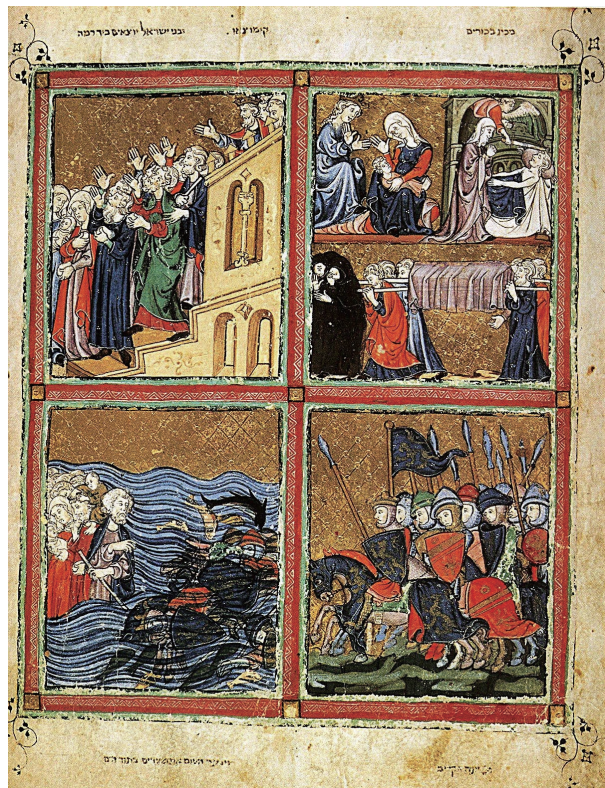 מכת בכורים
קומו צאו. ובני ישראל יוצאים ביד רמה
וינער השם את מצרים בתוך הים